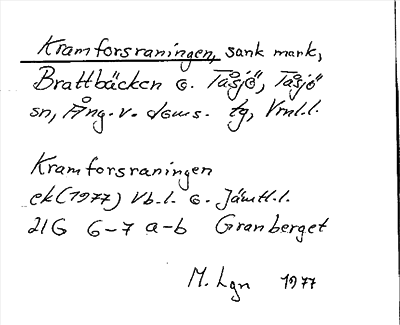 Kramforsraningen, sank mark,
Brattbäcken o. Tåsjö, Tåsjö
sn, Ång. v. doms. tg, Vrnl.l.
Kramforsraningen
ek (1977) Vb.l. o. Jämtl.l.
21G 6-7 a-b Granberget
M. Lgn 1977